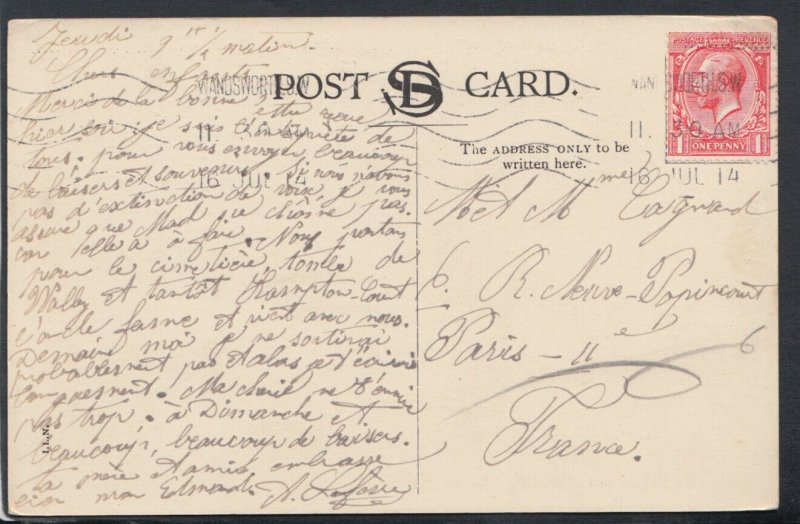 Jeudi 9 h ½ matin.
Chers enfants
Merci de la bonne lettre reçue
hier soir; je suis de
tous, pour vous envoyer beaucoup
de baisers et souvenirs. Si nous n'avons
pas d'extinction de voix, je vous
assure que Mad ne chôme pas.
car elle a à faire. Nous partons
pour le cimetière tombe de
Wally et tantôt Hampton-Court
et vient avec nous.
Demain moi je ne sortirai
probablement pas et alors je t'écrirai
longuement. Ma chérie, ne t'ennuie
pas trop. à Dimanche et
beaucoup, beaucoup de baisers.
ta mère et amie embrasse
bien mon Edmond. A.
POST CARD.
SD
The ADDRESS ONLY to be
written here.
WANDSWORTH, S.W.
11. 30 AM
16 JUL 14
WANDSWORTH, S.W.
11. 30 AM
16 JUL 14
POSTAGE REVENUE
1 ONE PENNY 1
M Mme
6. R. Neuve-Popincourt
Paris - 11e
France.
6
LL.N.